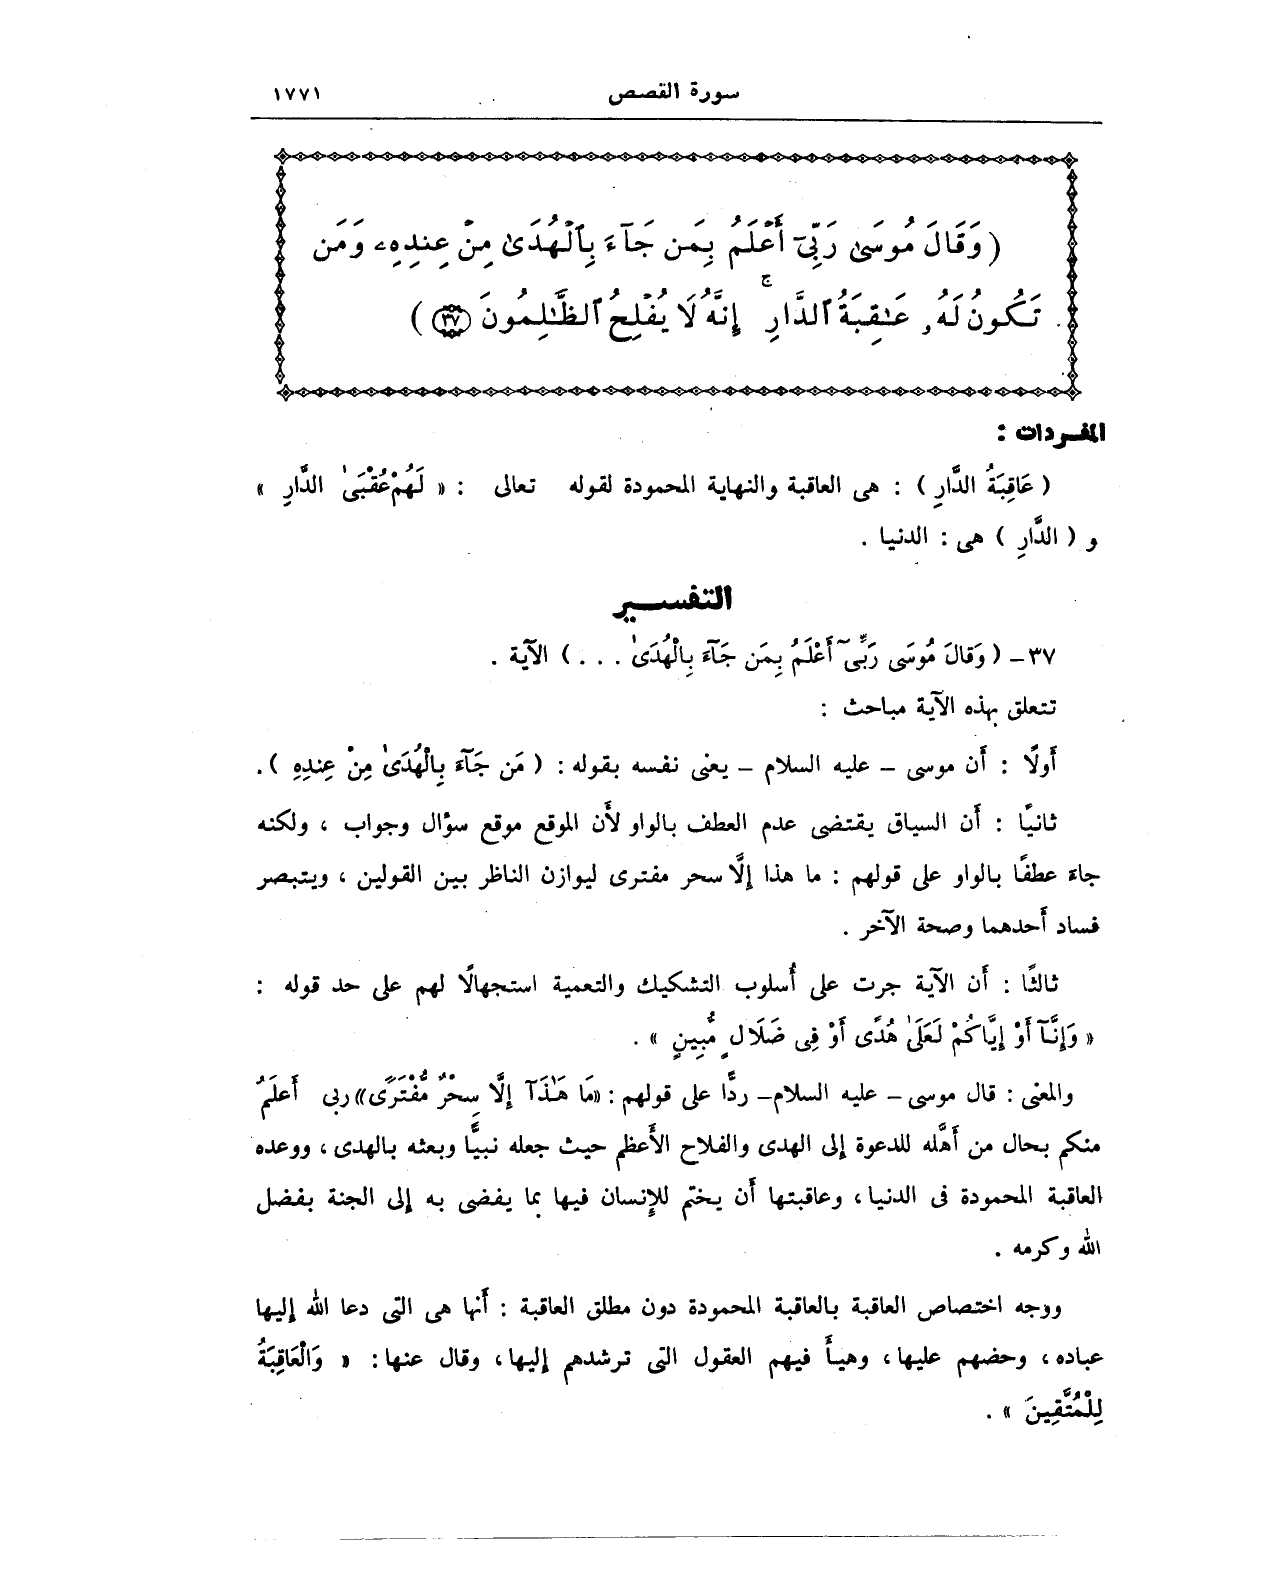 سورة القصص ١٧٧١
(وَقَالَ مُوسَىٰ رَبِّىٓ أَعْلَمُ بِمَن جَآءَ بِٱلْهُدَىٰ مِنْ عِندِهِۦ وَمَن
تَكُونُ لَهُۥ عَـٰقِبَةُ ٱلدَّارِ ۚ إِنَّهُۥ لَا يُفْلِحُ ٱلظَّـٰلِمُونَ ٣٧ )
المفـردات :
( عَاقِبَةُ الدَّارِ ) : هى العاقبة والنهاية المحمودة لقوله تعالى : « لَهُمْ عُقْبَىٰ الدَّارِ »
و ( الدَّارِ ) هى : الدنيا .
التفســـير
٣٧ – ( وَقَالَ مُوسَى رَبِّىٓ أَعْلَمُ بِمَن جَآءَ بِالْهُدَىٰ . . . ) الآية .
تتعلق بهذه الآية مباحث :
أَولًا : أَن موسى – عليه السلام – يعنى نفسه بقوله : ( مَن جَآءَ بِالْهُدَىٰ مِنْ عِندِهِ ) .
ثانيًا : أَن السياق يقتضى عدم العطف بالواو لأَن الموقع موقع سؤال وجواب ، ولكنه
جاءَ عطفًا بالواو على قولهم : ما هذا إلَّا سحر مفترى ليوازن الناظر بين القولين ، ويتبصر
فساد أَحدهما وصحة الآخر .
ثالثًا : أَن الآية جرت على أُسلوب التشكيك والتعمية استجهالًا لهم على حد قوله :
« وَإِنَّآ أَوْ إِيَّاكُمْ لَعَلَىٰ هُدًى أَوْ فِى ضَلَالٍ مُّبِينٍ » .
والمعنى : قال موسى – عليه السلام– ردًّا على قولهم : «مَا هَـٰذَآ إِلَّا سِحْرٌ مُّفْتَرًى» ربى أَعلَمُ
منكم بحال من أَهَّله للدعوة إلى الهدى والفلاح الأَعظم حيث جعله نبيًّا وبعثه بالهدى ، ووعده
العاقبة المحمودة فى الدنيا ، وعاقبتها أَن يختم للإنسان فيها بما يفضى به إلى الجنة بفضل
الله وكرمه .
ووجه اختصاص العاقبة بالعاقبة المحمودة دون مطلق العاقبة : أَنها هى التى دعا الله إليها
عباده ، وحضهم عليها ، وهيأَ فيهم العقول التى ترشدهم إليها ، وقال عنها : « وَالْعَاقِبَةُ
لِلْمُتَّقِينَ » .